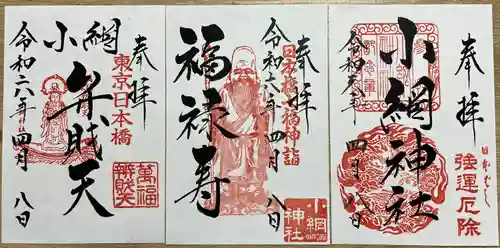 奉拝
東京日本橋
小網
弁財天
令和六年四月八日
萬福
辨財天
奉拝
日本橋七福神詣
福禄寿
令和六年四月八日
小網
神社
奉拝
強運厄除
小網神社
令和六年四月八日